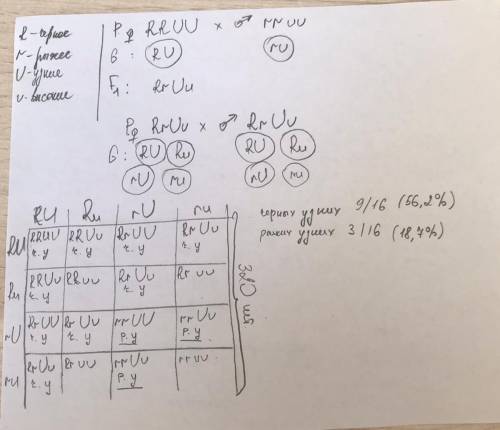 R - черное
r - рыжее
U - ушие
u - высокие
P ♀ RRUU × ♂ rruu
G: RU ru
F1: RrUu
P ♀ RrUu × ♂ RrUu
G: RU Ru RU Ru
rU ru rU ru
RU Ru rU ru
RU RRUU RRUu RrUU RrUu
ч. у ч. у ч. у ч. у
Ru RRUu RRuu RrUu Rruu
ч. у ч. у
rU RrUU RrUu rrUU rrUu
ч. у ч. у р. у р. у
ru RrUu Rruu rrUu rruu
ч. у р. у
черных уших 9/16 (56,2%)
рыжих уших 3/16 (18,7%)